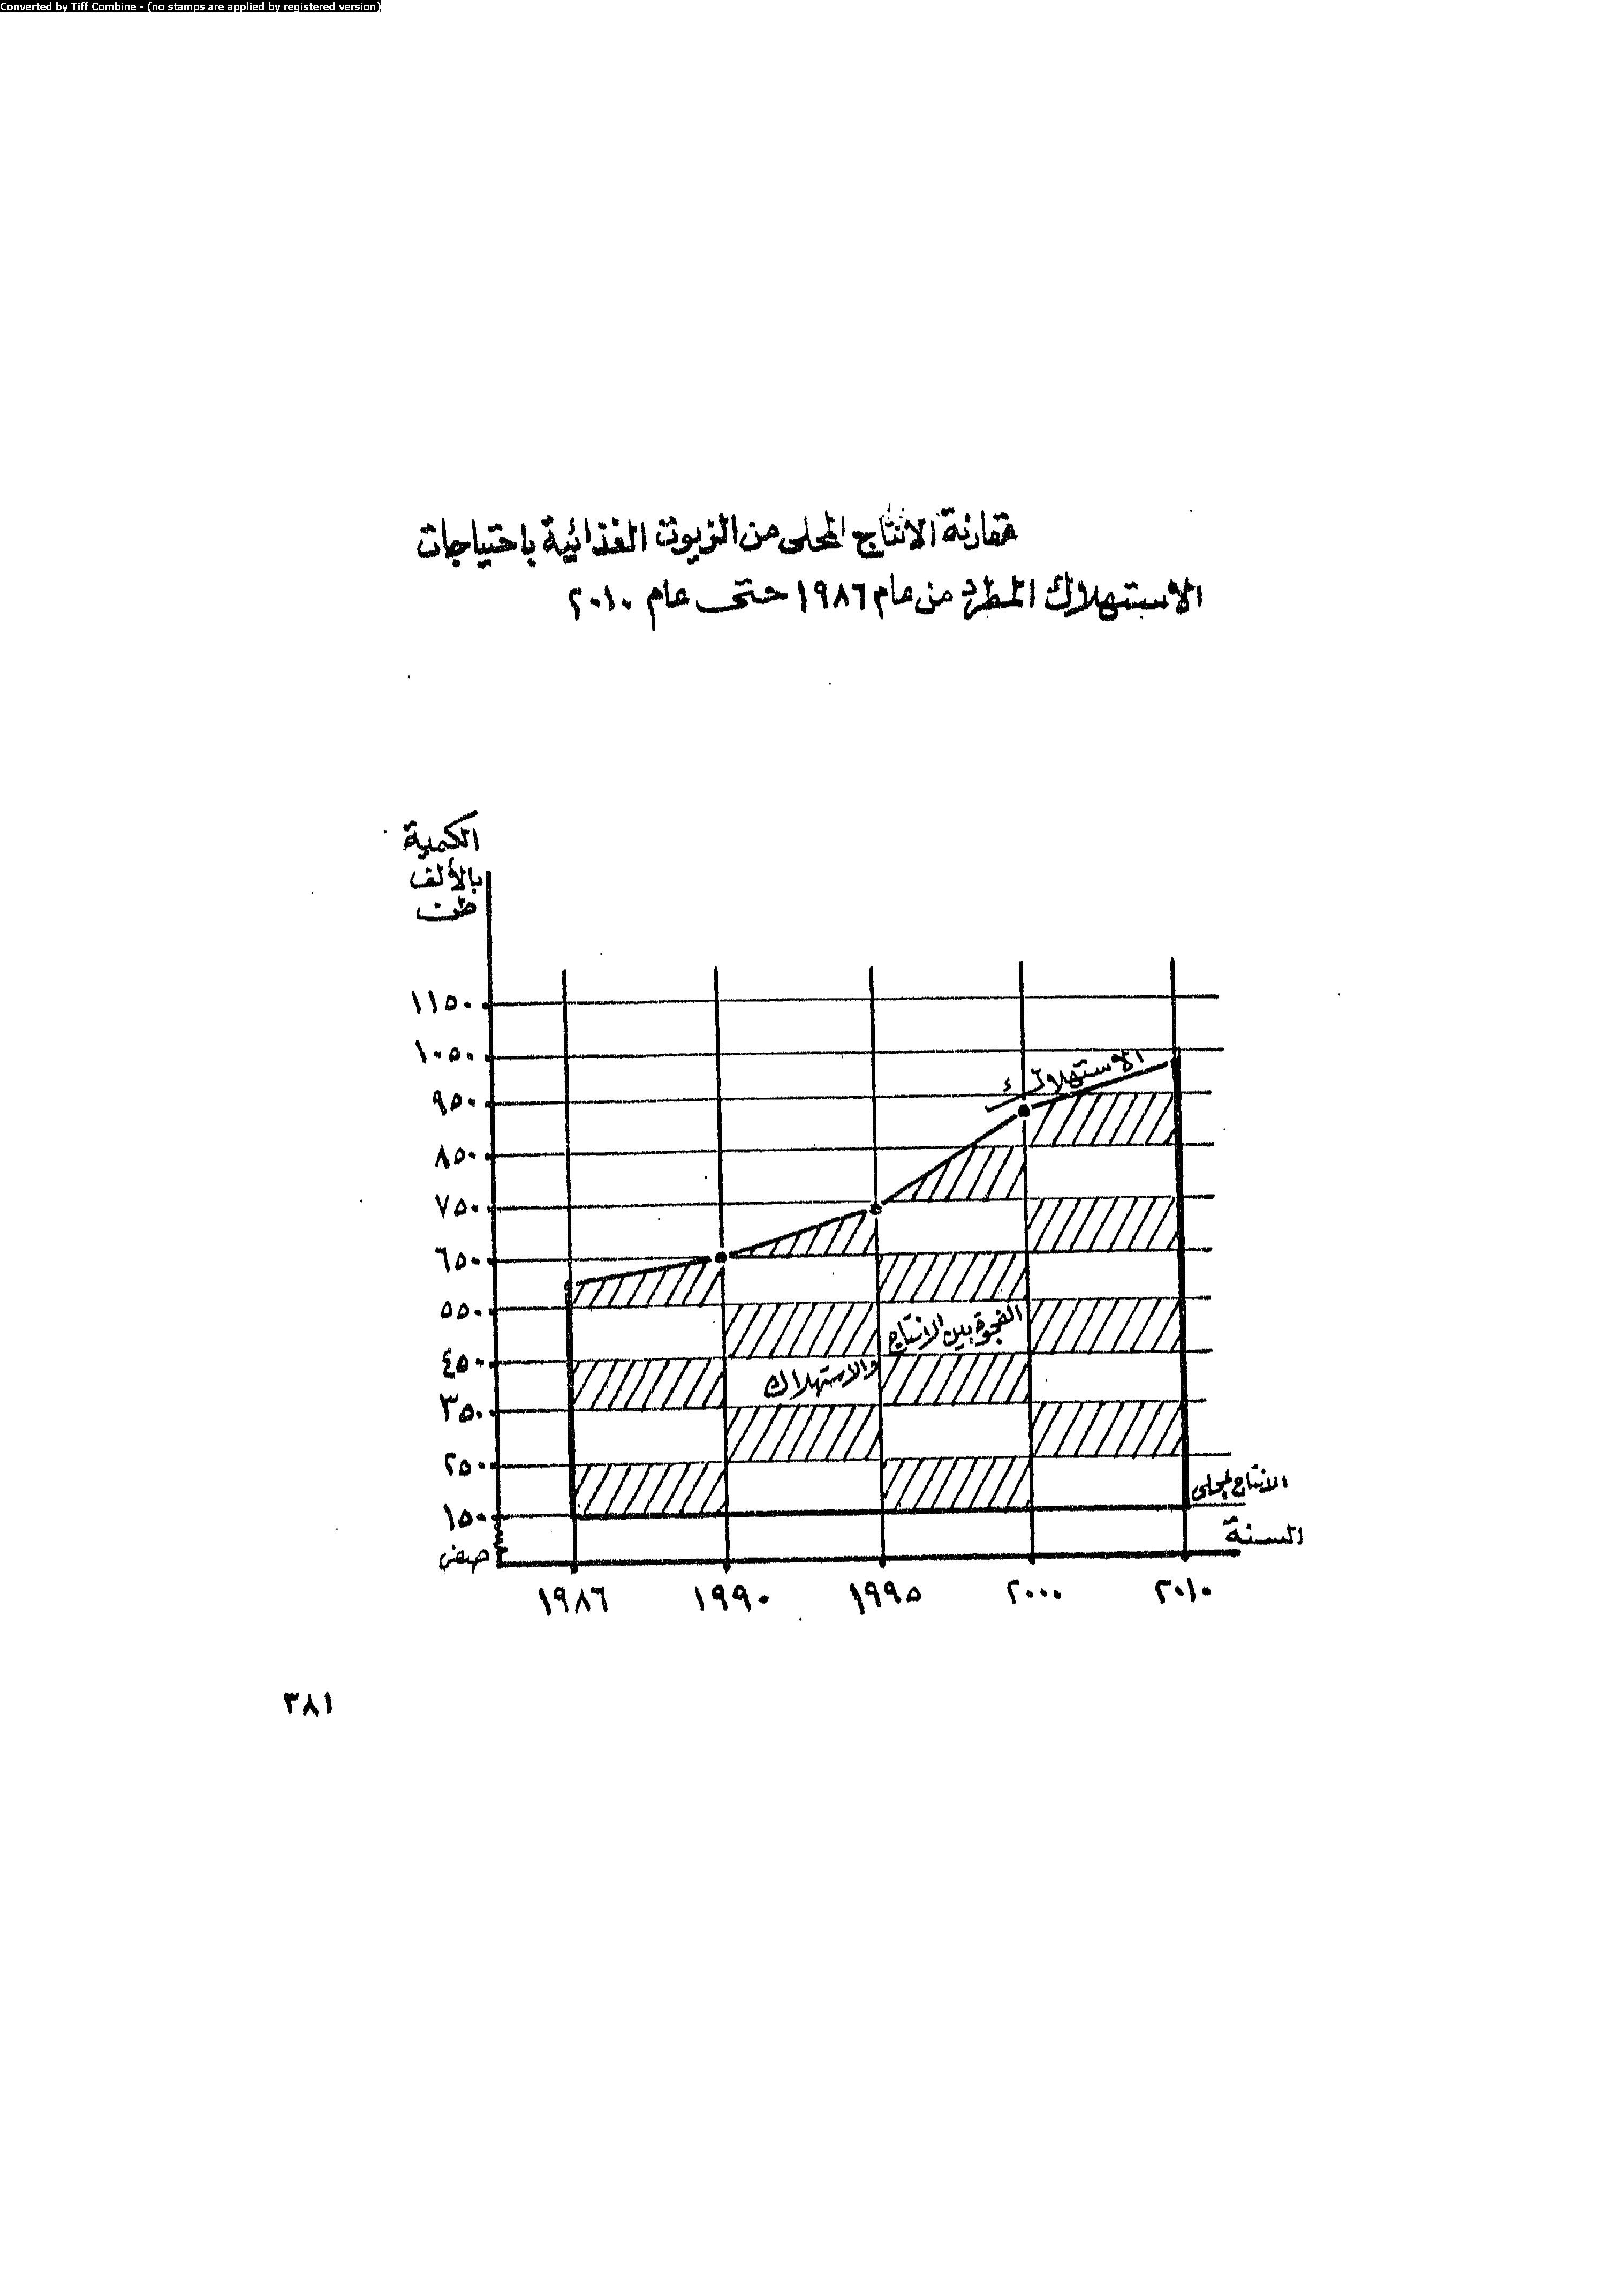 Converted by Tiff Combine - (no stamps are applied by registered version)
مقارنة الانتاج المحلى من الزيوت الغذائية باحتياجات
الاستهلاك المطرد من عام ١٩٨٦ حتى عام ٢٠١٠
الكمية
بالألف
طن
١١٥٠
١٠٥٠
٩٥٠
٨٥٠
٧٥٠
٦٥٠
٥٥٠
٤٥٠
٣٥٠
٢٥٠
١٥٠
صفر
الاستهلاك
الفجوة بين الانتاج
والاستهلاك
الانتاج المحلى
السنة
١٩٨٦
١٩٩٠
١٩٩٥
٢٠٠٠
٢٠١٠
٣٨١